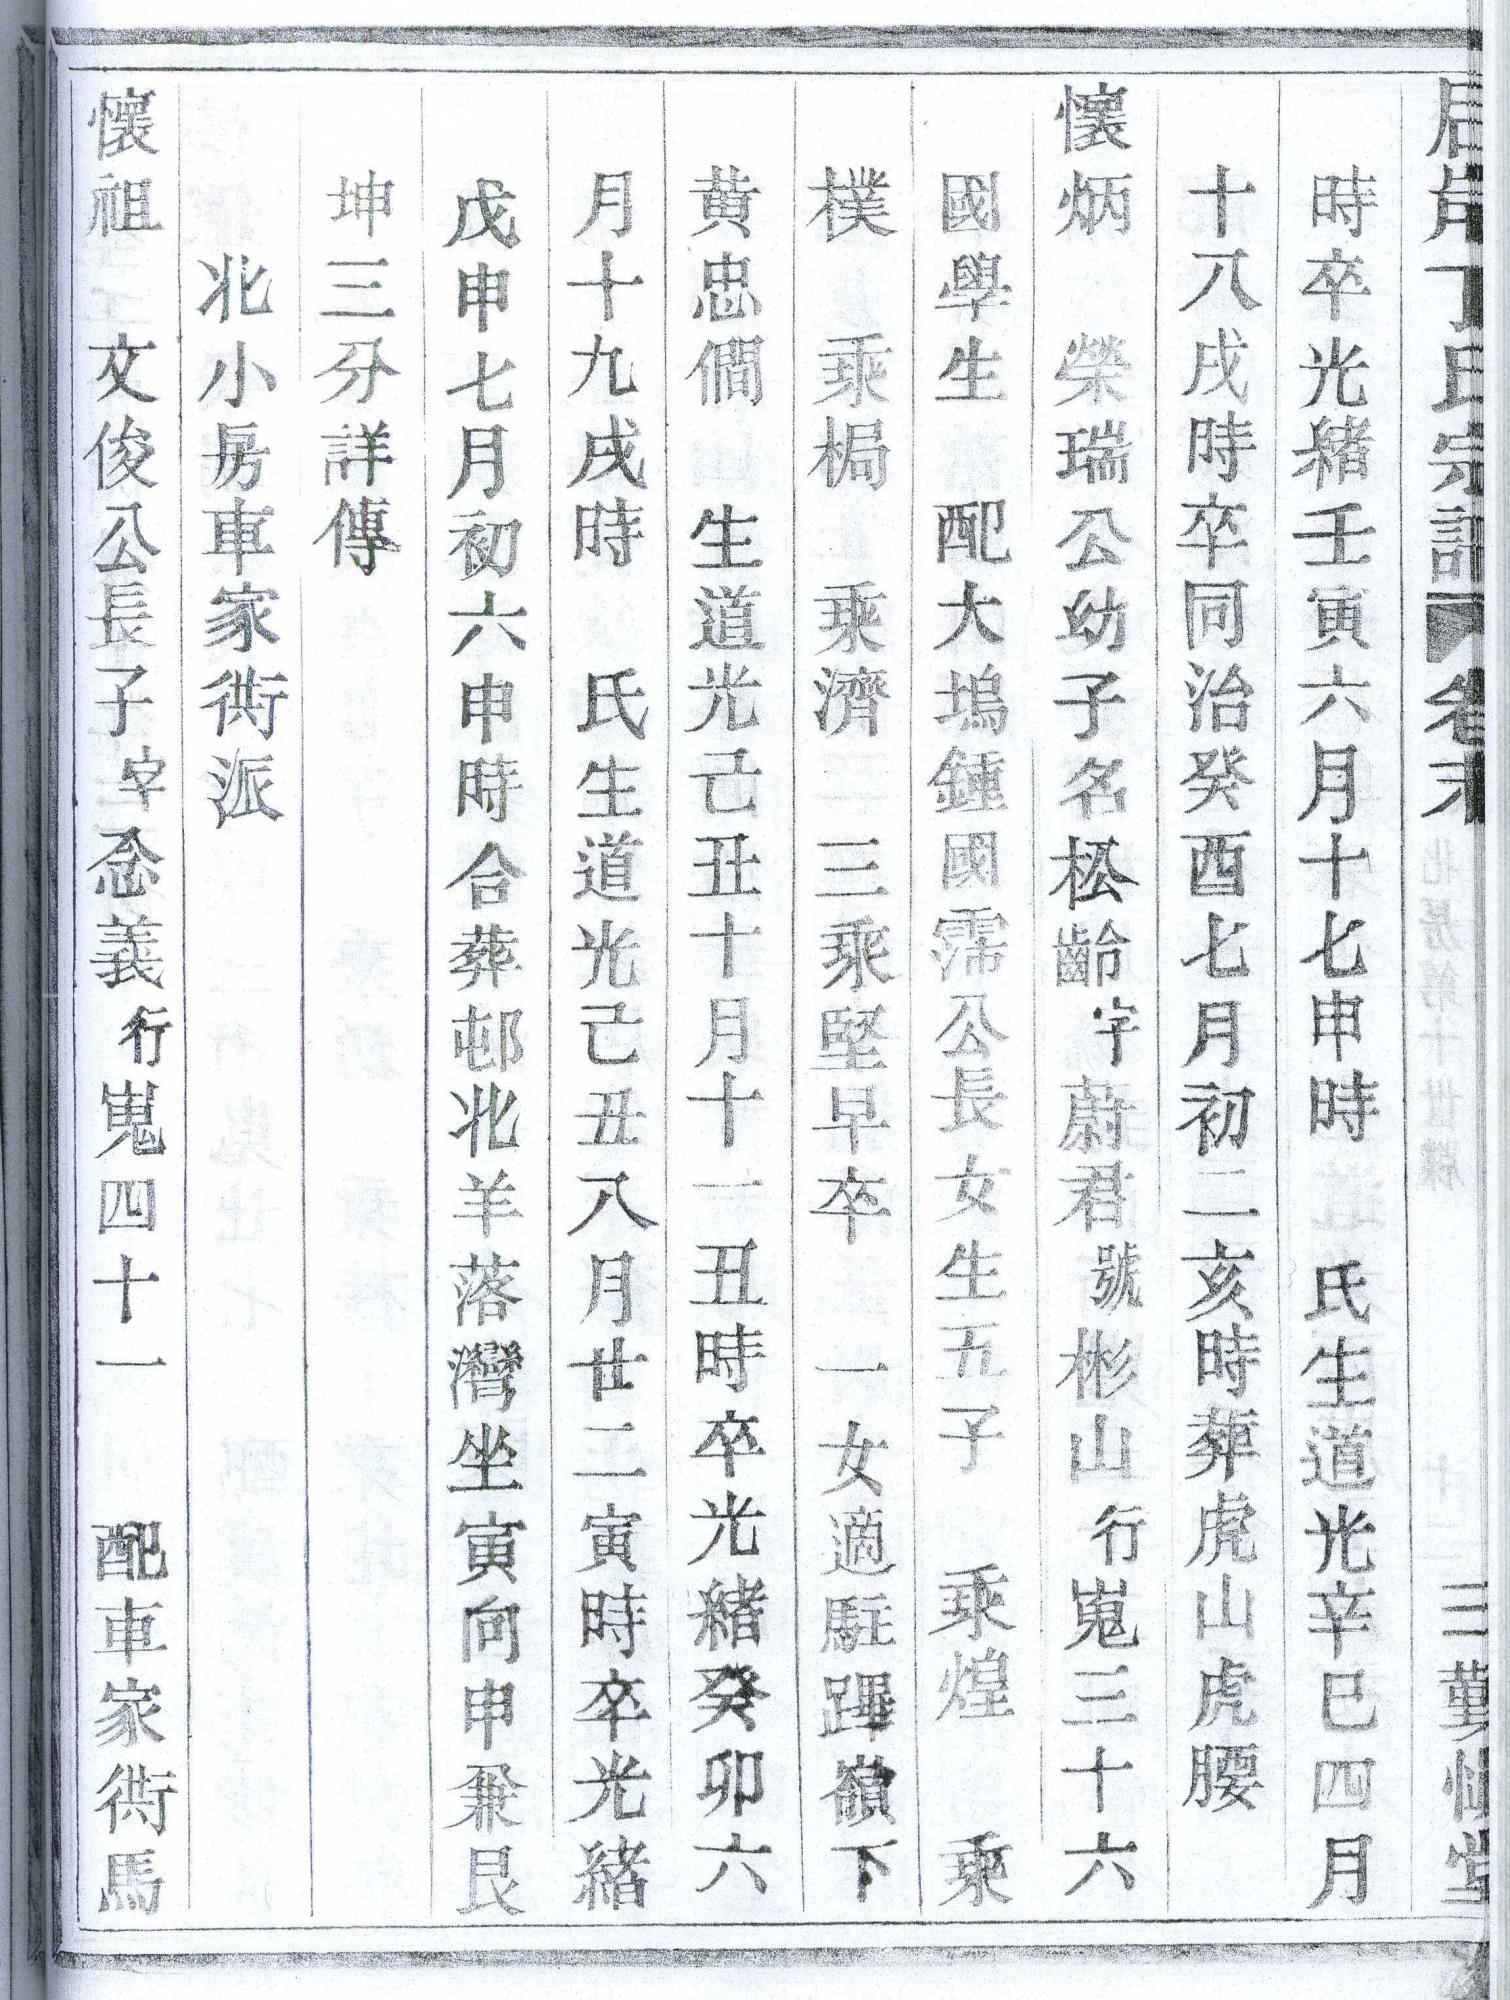 丁氏宗譜 卷末 三 黃慎堂
時卒光緒壬寅六月十七申時 氏生道光辛巳四月
十八戌時卒同治癸酉七月初二亥時葬虎山虎腰
懷炳 榮瑞公幼子名松齡字蔚君號彬山行嵬三十六
國學生 配大塢鍾國霈公長女生五子 乘煌 乘
樸 乘梮 乘濟 三乘堅早卒 一女適駐蹕嶺下
黃忠僩 生道光己丑十月十一丑時卒光緒癸卯六
月十九戌時 氏生道光己丑八月廿二寅時卒光緒
戊申七月初六申時合葬邨北羊落灣坐寅向申兼艮
坤三分詳傳
北小房車家衖派
懷祖 文俊公長子字念義行嵬四十一 配車家衖馬